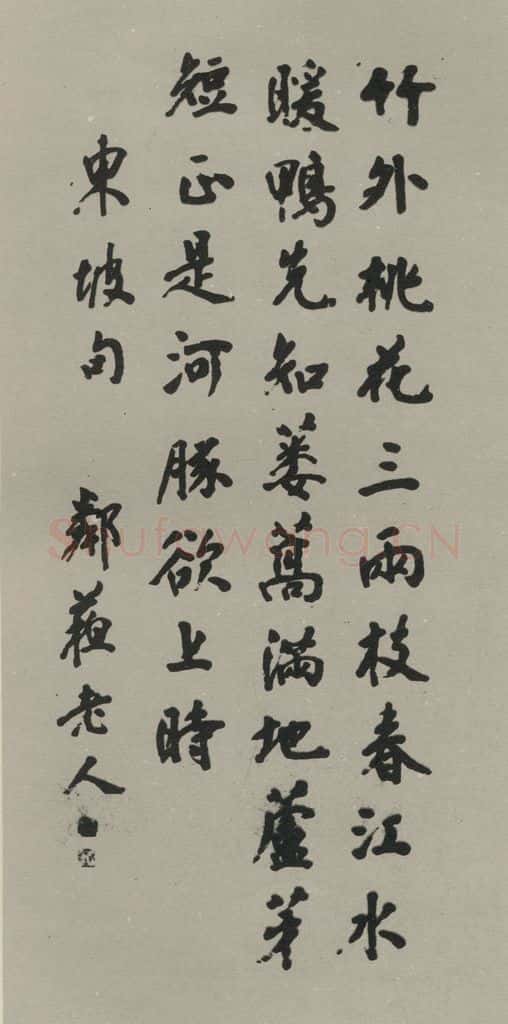 竹外桃花三兩枝春江水
暖鴨先知蔞蒿滿地蘆芽
短正是河豚欲上時
東坡句 鄰蘓老人
Shufawang.CN